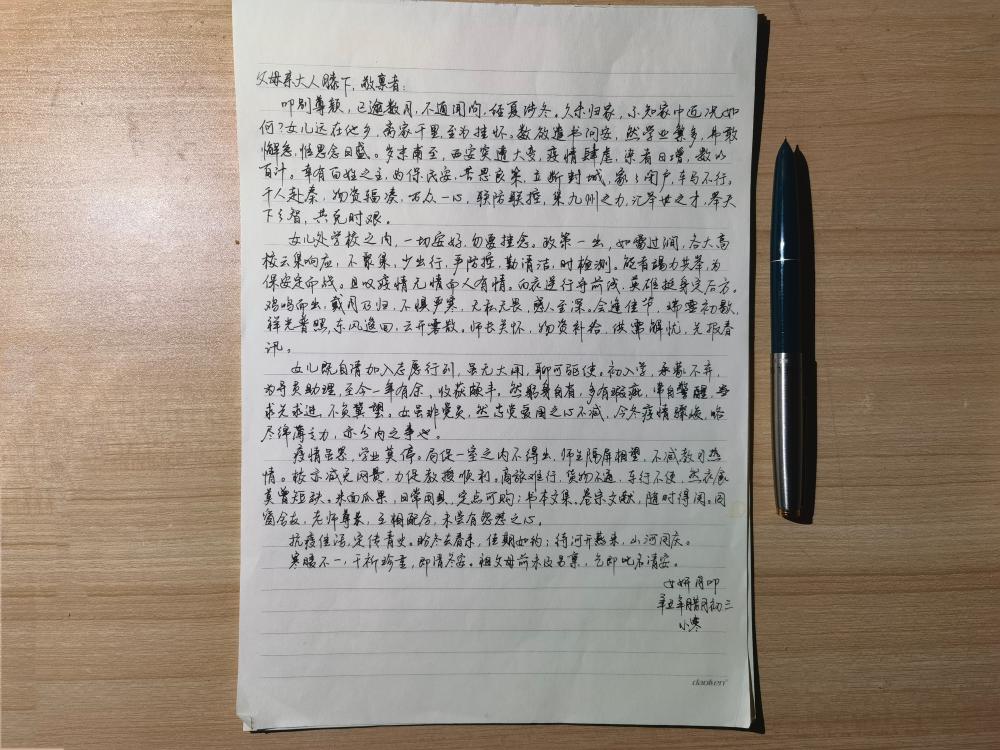 父母亲大人膝下，敬禀者：
叩别尊颜，已逾数月，不通闻问，经夏涉冬。久未归家，不知家中近况如
何？女儿远在他乡，离家千里，至为挂怀。数欲遣书问安，然学业繁多，弗敢
懈怠，惟思念日盛。岁末南至，西安突遭大变，疫情肆虐，染者日增，数以
百计。幸有百姓之主，为保民安，苦思良策，立断封城，家家闭户，车马不行。
千人赴秦，物资辐凑，百众一心，联防联控，集九州之力，汇举世之才，举天
下之智，共克时艰。
女儿处学校之内，一切安好，勿要挂念。政策一出，如雷过涧，各大高
校云集响应，不聚集，少出行，严防控，勤清洁，时检测。能者竭力共举，为
保安定而战。且叹疫情无情而人有情。白衣逆行寻前线，英雄挺身定后方。
鸡鸣而出，戴月乃归，不惧严寒，无私无畏，感人至深。会逢佳节，瑞雪初歇，
祥光普照，东风逸回，云开雾散。师长关怀，物资补给，供需解忧，先报春
讯。
女儿既自请加入志愿行列，虽无大用，聊可驱使。初入学，承蒙不弃，
为导员助理，至今一年有余，收获颇丰。然躬身自省，多有瑕疵，常自警醒，
求光求进，不负冀望。女虽非党员，然志党爱国之心不减，今冬疫情骤峻，略
尽绵薄之力，亦分内之事也。
疫情虽累，学业莫停。局促一室之内不得出，师生隔屏相望，不减教习热
情。校亦减免网费，力促教授顺利。商旅难行，货物不通，车行不便，然衣食
莫曾短缺。米面瓜果，日常用具，定点可购；书本文集，卷宗文献，随时得阅。同
窗舍友，老师尊长，互相配合，未尝有怨怼之心。
抗疫佳话，定传青史。盼冬去春来，佳期如约；待河开燕来，山河同庆。
寒暖不一，千祈珍重，即请冬安。祖父母前未及另禀，乞即叱名请安。
女妍月叩
辛丑年腊月初三
小寒
daolen